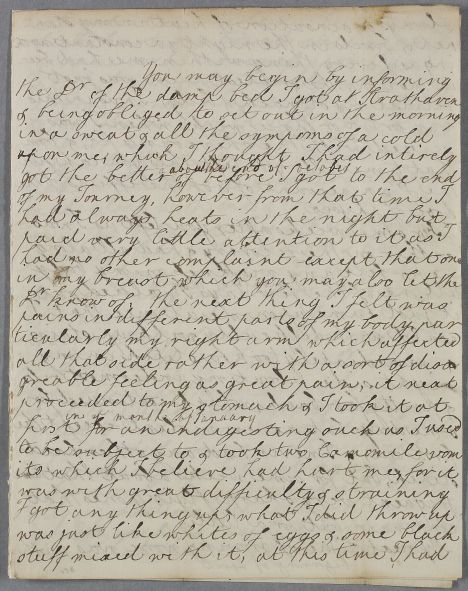 You may begin by informing
the Dr of the damp bed I got at Strathaven
& being obliged to set out in the morning
in a sweat & all the symptoms of a cold
upon me, which I thought I had intirely
about the end of
got the better of before I got to the end
of my Journey, however from that time I
had always heats in the night but
paid very little attention to it as I
had no other complaint except that one
in my breast which you may also let the
Dr know of. the next thing I felt was
pains in different parts of my body par
ticularly my right arm which affected
all that side rather with a sort of disa
greable feeling as great pain; it next
proceeded to my stomach & I took it at
in the month of January
first for an indigesting such as I used
to be subject to & took two Camomile vom
its which I believe had hurt me, for it
was with great difficulty & straining
I got any thing up, what I did throw up
was just like whites of eggs & some black
stuff mixed with it, at this time I had